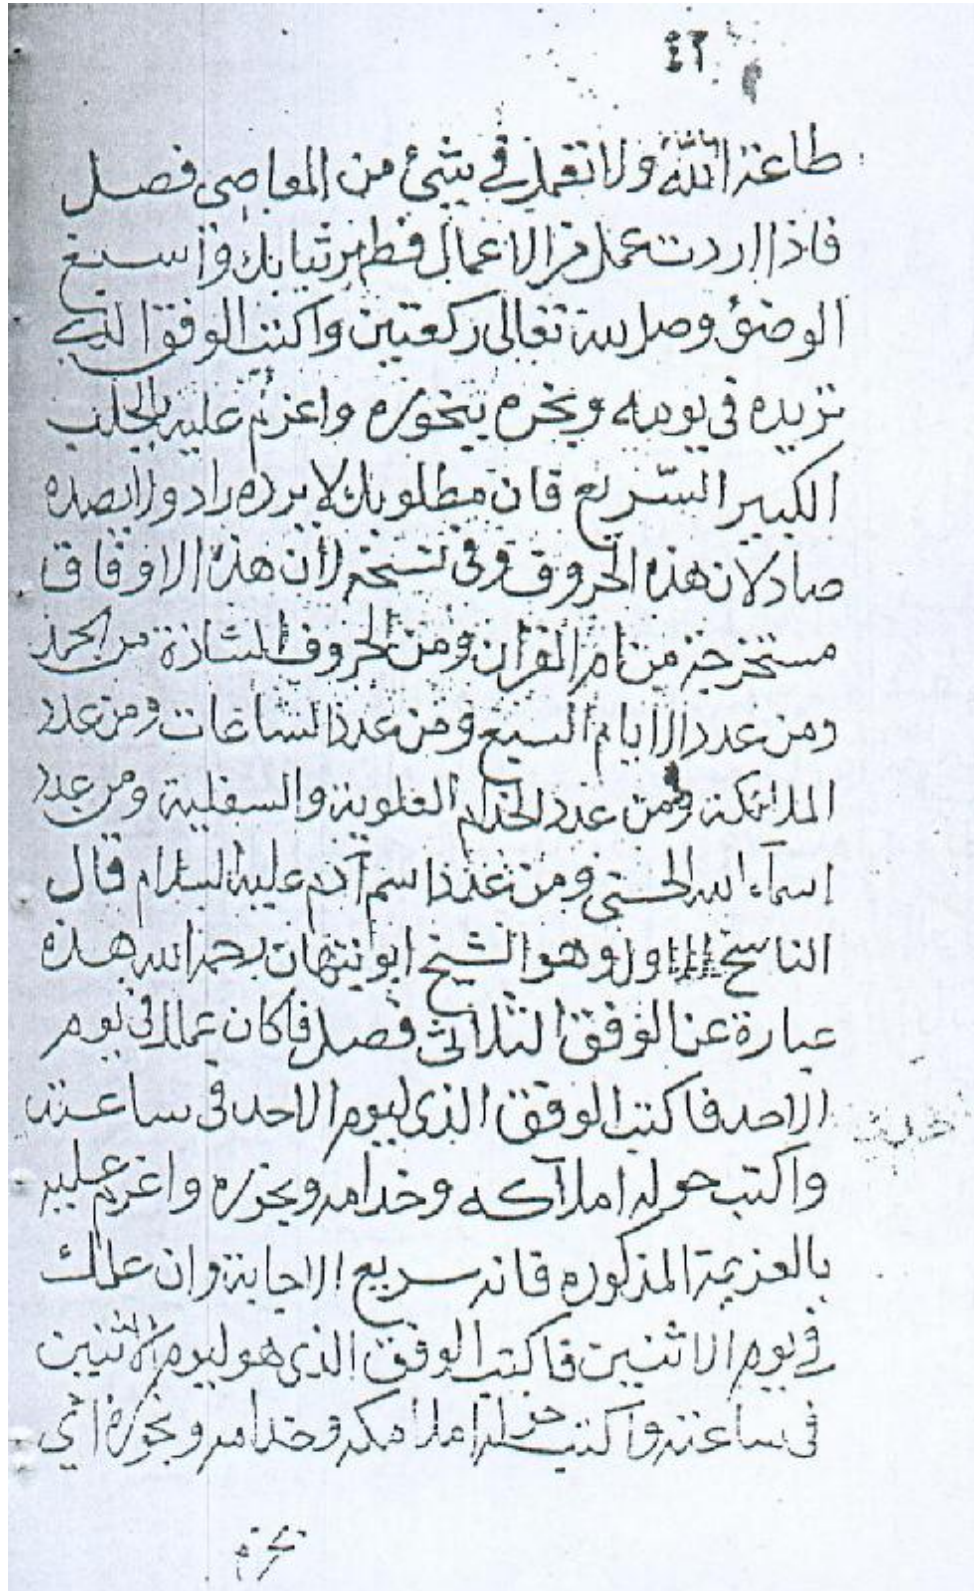 ٤٢
طاعة الله ولا تعمل في شئ من المعاصي فصل
فاذا اردت عمل من الاعمال فطهر ثيابك واسبغ
الوضؤ وصل لله تعالى ركعتين واكتب الوفق الذي
تريده في يومه وبخره ببخوره واعزم عليه بالجلب
الكبير السريع فان مطلوبك لا يرده راد ولا يصده
صاد لان هذه الحروف وفي نسخة لان هذه الاوفاق
مستخرجة من ام القران ومن الحروف الشاذة من الحمد
ومن عدد الايام السبع ومن عدد الساعات ومن عدد
الملائكة ومن عدد الخدام العلوية والسفلية ومن عدد
اسمآء الله الحسنى ومن عدد اسم آدم عليه السلام قال
الناسخ الاول وهو الشيخ ابو نبهان رحمه الله هذه
عبارة عن الوفق الثلاثي فصل فاكان عملك في يوم
الاحد فاكتب الوفق الذي ليوم الاحد في ساعته
واكتب حوله املاآكه وخدامه وبخوره واعزم عليه
بالعزيمة المذكوره فانه سريع الاجابة وان عملك
في يوم الاثنين فاكتب الوفق الذي هو ليوم الاثنين
في ساعته واكتب حوله املامكه وخدامه وبخوره اي